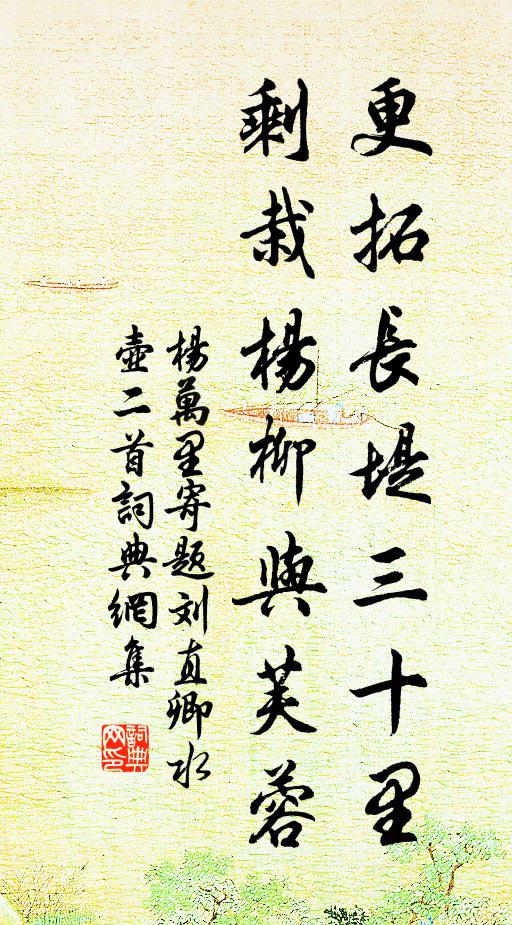 更拓長堤三十里
剩栽楊柳與芙蓉
楊萬里寄題刘直卿水
壺二首詞典網集
詞典
网印